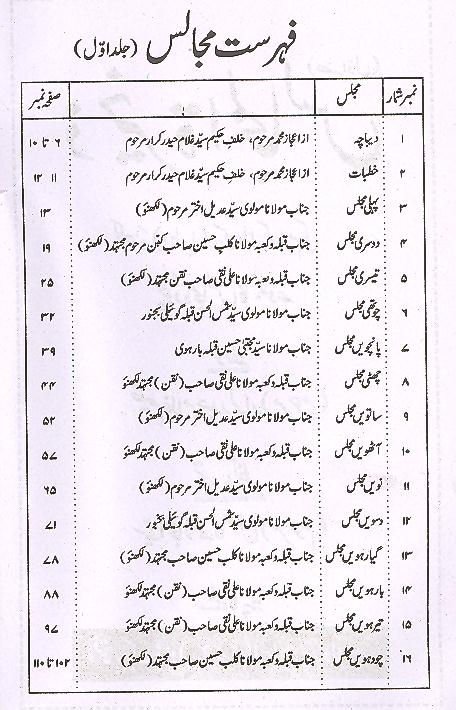 فہرست مجالس (جلد اوّل)
نمبر شمار مجلس صفحہ نمبر
۱ دیباچہ از اعجاز محمد مرحوم، خلف حکیم سیّد غلام حیدر کرار مرحوم ۶ تا ۱۰
۲ خطبات از اعجاز محمد مرحوم، خلف حکیم سیّد غلام حیدر کرار مرحوم ۱۱ ۱۲
۳ پہلی مجلس جناب مولانا مولوی سیّد عدیل اختر مرحوم (لکھنؤ) ۱۳
۴ دوسری مجلس جناب قبلہ و کعبہ مولانا کلب حسین صاحب کبّن مرحوم مجتہد (لکھنؤ) ۱۹
۵ تیسری مجلس جناب قبلہ و کعبہ مولانا علی نقی صاحب نقن مجتہد (لکھنؤ) ۲۵
۶ چوتھی مجلس جناب مولانا مولوی سیّد شمس الحسن قبلہ گوئیلی بجنور ۳۲
۷ پانچویں مجلس جناب مولانا سیّد مجتبیٰ حسین قبلہ بارہوی ۳۹
۸ چھٹی مجلس جناب قبلہ و کعبہ مولانا علی نقی صاحب (نقن) مجتہد لکھنؤ ۴۴
۹ ساتویں مجلس جناب مولانا مولوی سیّد عدیل اختر مرحوم (لکھنؤ) ۵۲
۱۰ آٹھویں مجلس جناب قبلہ و کعبہ مولانا علی نقی صاحب (نقن) مجتہد لکھنؤ ۵۷
۱۱ نویں مجلس جناب مولانا مولوی سیّد عدیل اختر مرحوم (لکھنؤ) ۶۵
۱۲ دسویں مجلس جناب مولانا مولوی سیّد شمس الحسن قبلہ گوئیلی بجنور ۷۱
۱۳ گیارہویں مجلس جناب قبلہ و کعبہ مولانا کلب حسین صاحب مجتہد (لکھنؤ) ۷۸
۱۴ بارہویں مجلس جناب قبلہ و کعبہ مولانا علی نقی صاحب (نقن) مجتہد لکھنؤ ۸۸
۱۵ تیرہویں مجلس جناب قبلہ و کعبہ مولانا علی نقی صاحب (نقن) مجتہد لکھنؤ ۹۷
۱۶ چودہویں مجلس جناب قبلہ و کعبہ مولانا کلب حسین صاحب مجتہد (لکھنؤ) ۱۰۲ تا ۱۱۰